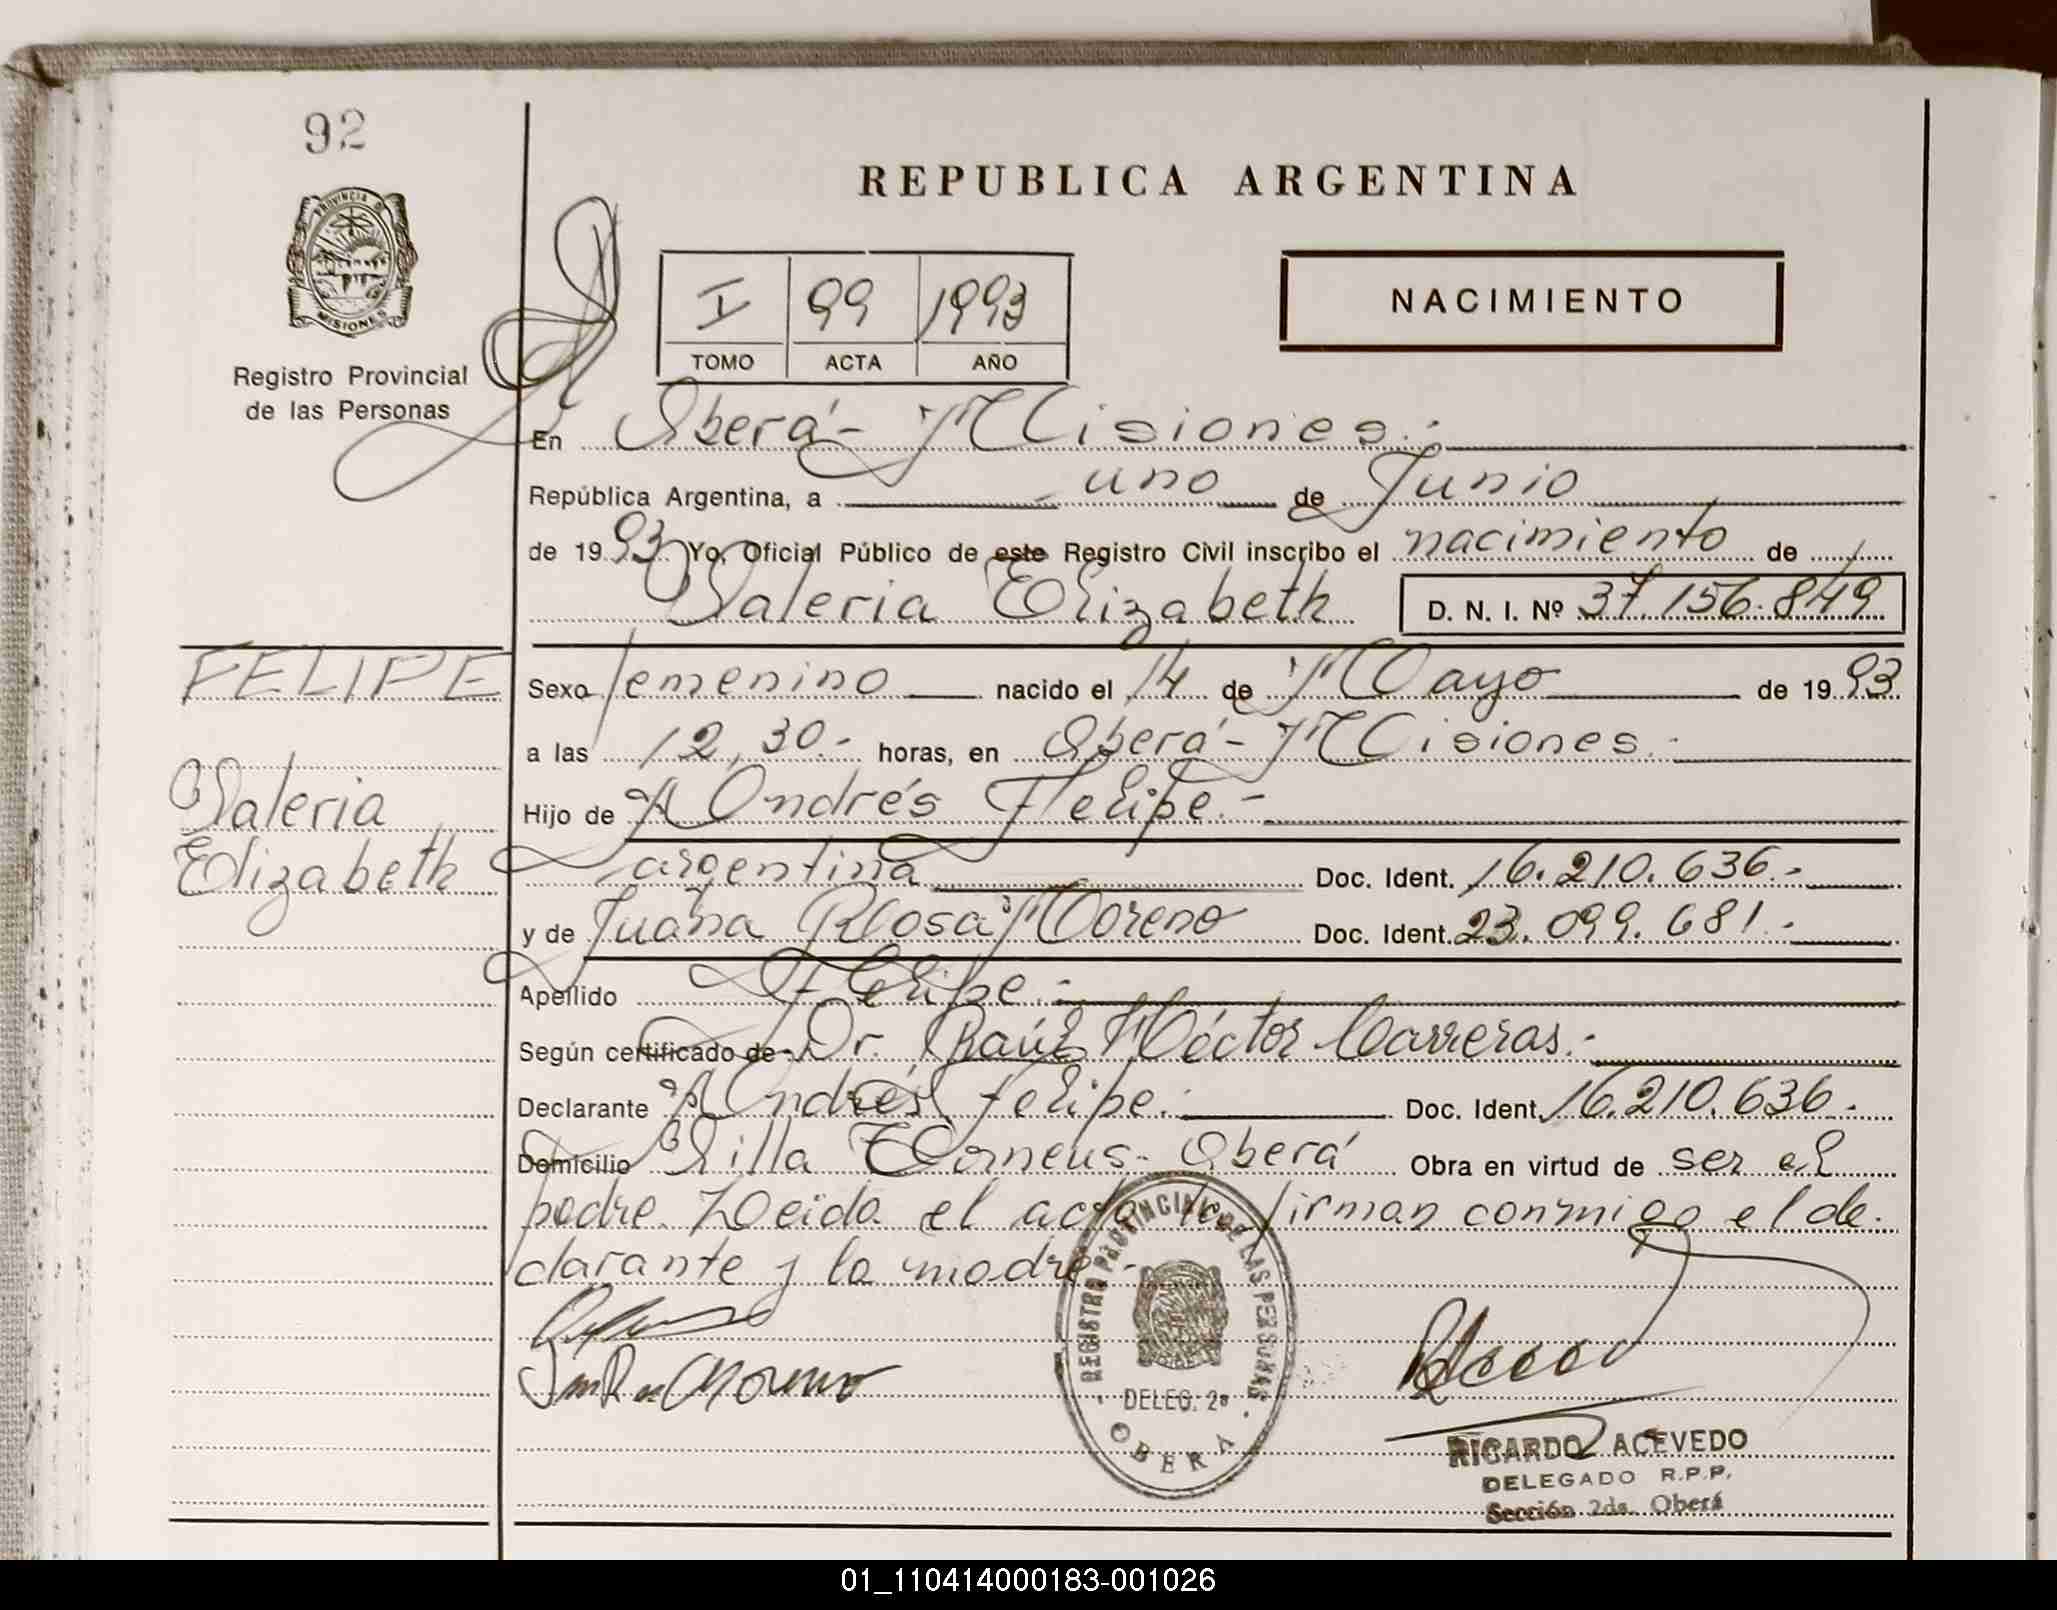 92
REPUBLICA ARGENTINA
PROVINCIA DE
MISIONES
Registro Provincial
de las Personas
I 99 1993
TOMO ACTA AÑO
NACIMIENTO
En Oberá - Misiones.-
República Argentina, a uno de Junio
de 1993 Yo, Oficial Público de este Registro Civil inscribo el nacimiento de
Valeria Elizabeth D. N. I. Nº 37.156.849
FELIPE
Valeria
Elizabeth
Sexo femenino nacido el 14 de Mayo de 1993
a las 12,30.- horas, en Oberá - Misiones.-
Hijo de Andrés Felipe.-
argentina Doc. Ident. 16.210.636.-
y de Juana Rosa Moreno Doc. Ident. 23.099.681.-
Apellido Felipe.-
Según certificado de Dr. Raúl Héctor Carreras.-
Declarante Andrés Felipe. Doc. Ident. 16.210.636.-
Domicilio Villa - Oberá Obra en virtud de ser el
padre. Leida el acta la firman conmigo el de-
clarante y la madre.-
Moreno
REGISTRO PROVINCIAL DE LAS PERSONAS
DELEG. 2ª
OBERA
RICARDO ACEVEDO
DELEGADO R.P.P.
Sección 2da. Oberá
01_110414000183-001026